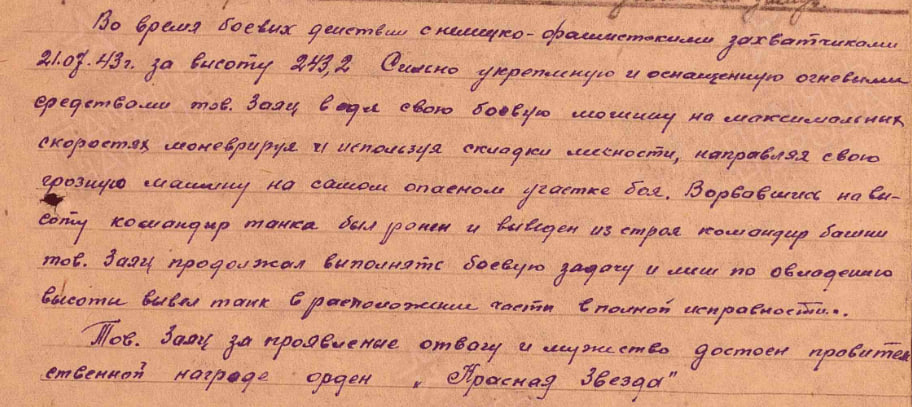 Во время боевых действии с немецко-фашистскими захватчиками
21.07.43г. за высоту 243,2 Сильно укрепленую и оснащенную огневыми
средствами тов. Заяц водя свою боевую машину на максимальных
скоростях моневрируя и используя складки месности, направляя свою
грозную машину на самом опасном участке боя. Ворвавшись на вы-
соту командыр танка был ранен и выведен из строя командир башни
тов. Заяц продолжал выполнять боевую задачу и лиш по овладению
высоти вывел танк в расположение части в полной исправности..
Тов. Заяц за проявление отвагу и мужество достоен правител
ственной награде орден „Красная Звезда"